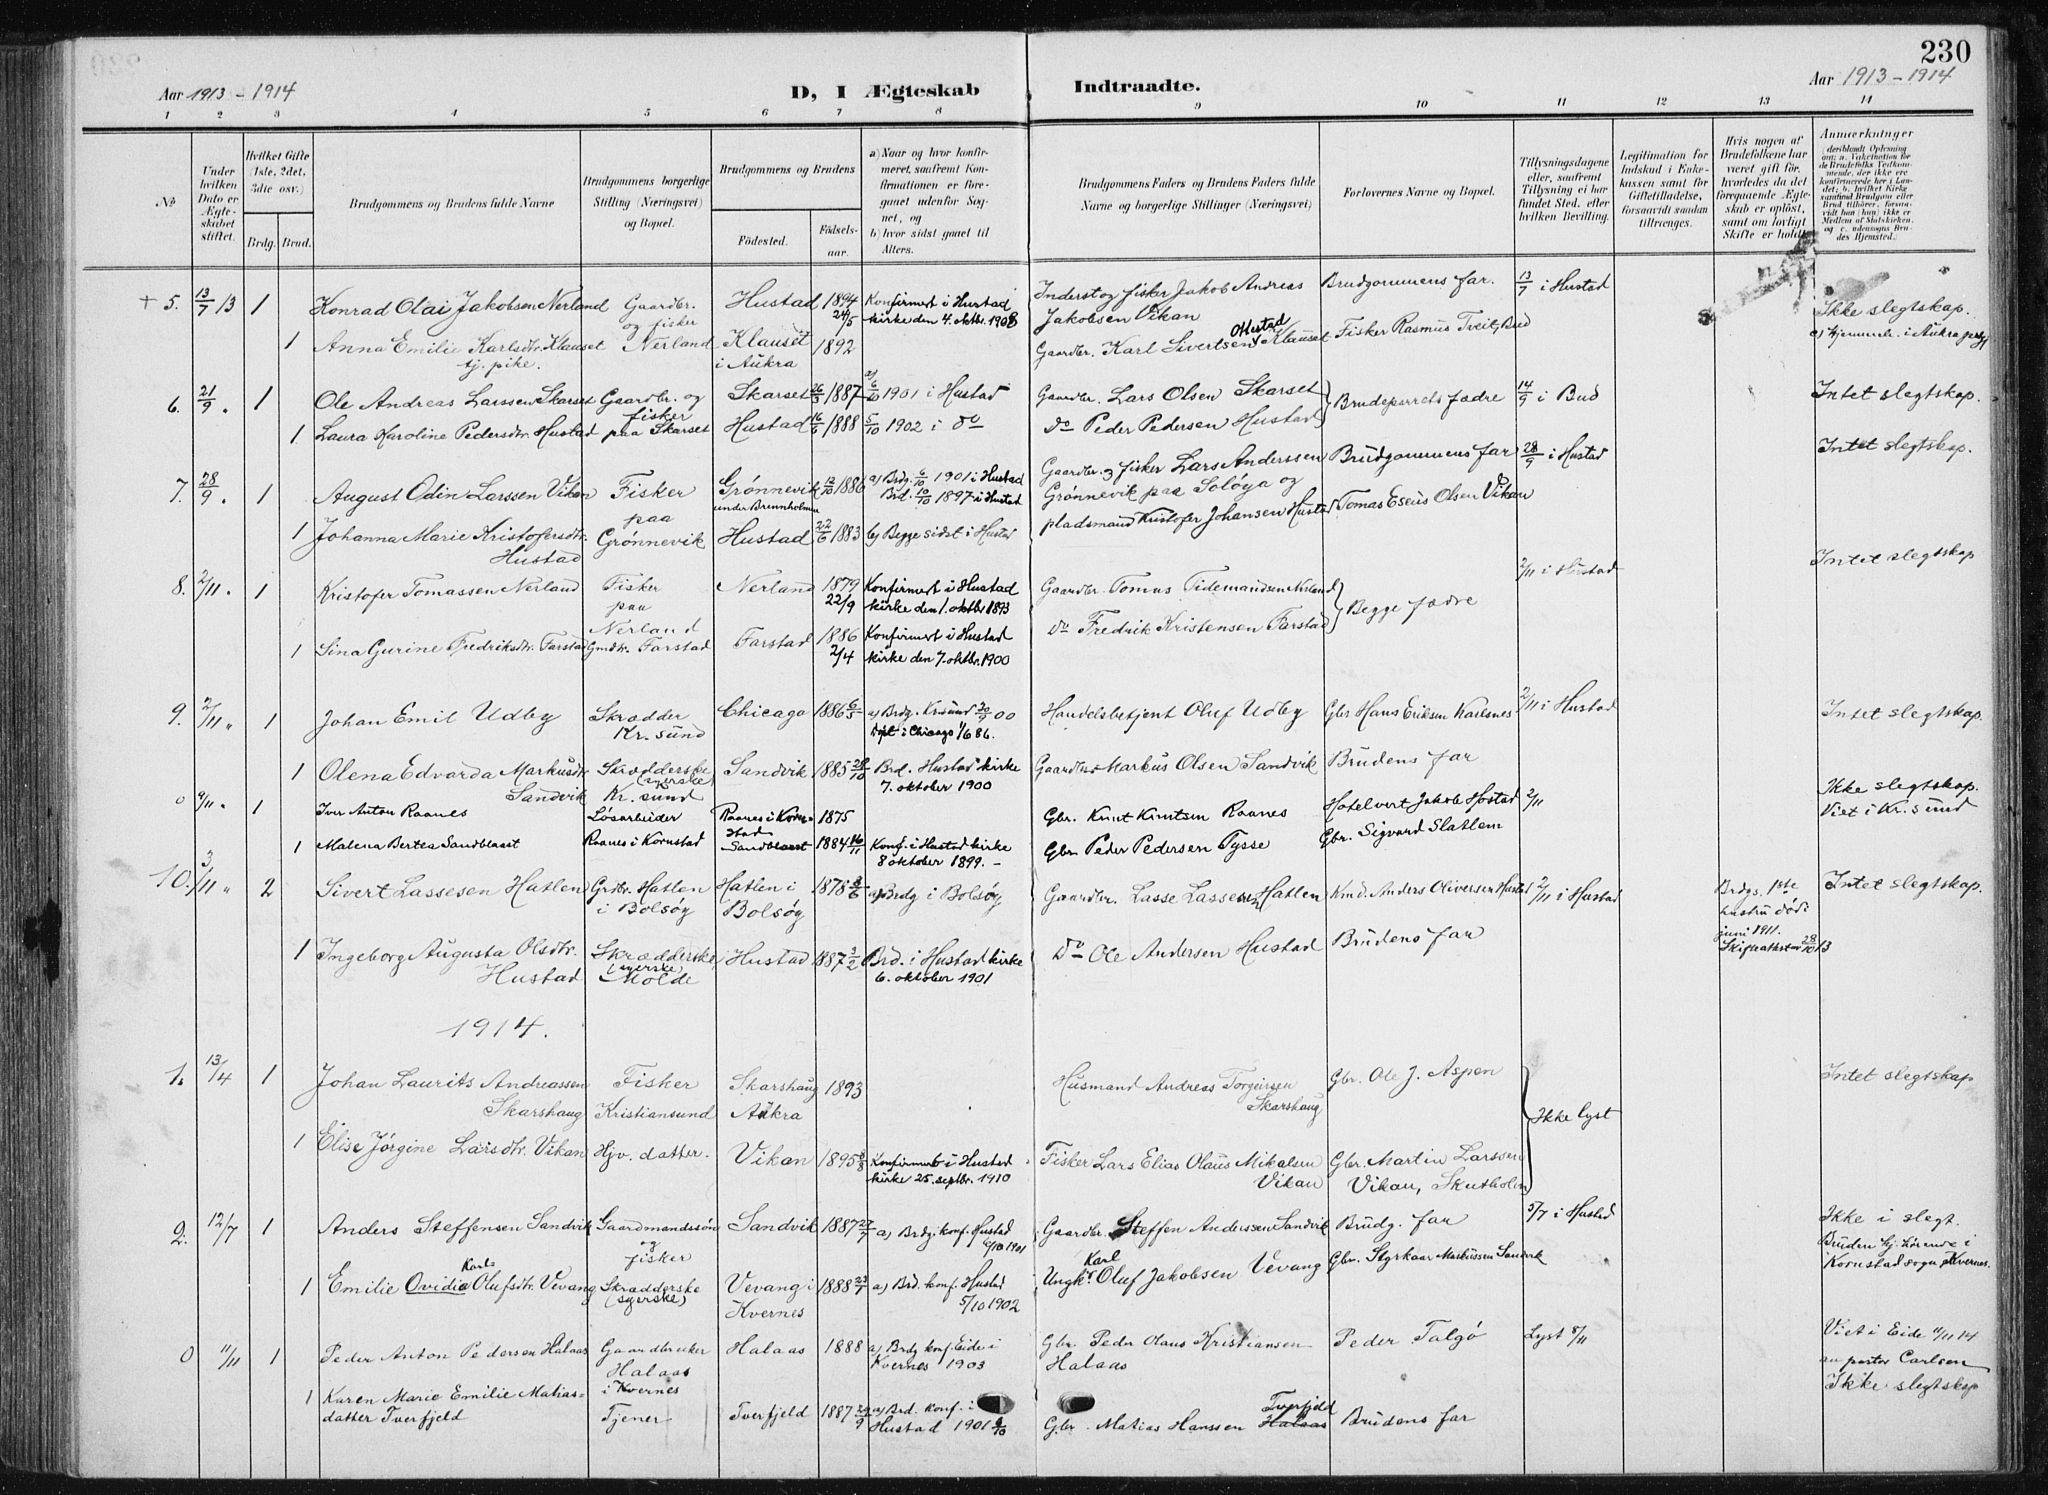 230
Aar 1913 - 1914
D, I Ægteskab Indtraadte.
Aar 1913 - 1914
1 2 3 4 5 6 7 8 9 10 11 12 13 14
No
Under hvilken Dato er Ægteskabet stiftet.
Hvilket Gifte (1ste, 2det, 3die osv.)
Brdg. Brud.
Brudgommens og Brudens fulde Navne
Brudgommens borgerlige Stilling (Næringsvei) og Bopæl.
Brudgommens og Brudens
Födested. Födselsaar.
a) Naar og hvor konfirmeret, saafremt Konfirmationen er foregaaet udenfor Sognet, og
b) hvor sidst gaaet til Alters.
Brudgommens Faders og Brudens Faders fulde Navne og borgerlige Stillinger (Næringsvei)
Forlovernes Navne og Bopæl.
Tillysningsdagene eller, saafremt Tillysning ei har fundet Sted, efter hvilken Bevilling.
Legitimation for Indskud i Enkekassen samt for Giftetilladelse, forsaavidt saadan tiltrænges.
Hvis nogen af Brudefolkene har været gift för, hvorledes da det foregaaende Ægteskab er oplöst, samt om lovligt Skifte er holdt.
Anmærkninger (deriblandt Oplysning om: a. Vaccination for de Brudefolks Vedkommende, der ikke ere konfirmerede her i Landet; b. hvilket Kirkesamfund Brudgom eller Brud tilhører, forsaavidt han (hun) ikke er Medlem af Statskirken, og c. udensogns Brudes Hjemsted.)
+ 5. 13/7 13 1 Konrad Olai Jakobsen Nerland Gaardbr. og fisker Nerland Hustad 1894 24/5 Konfirmert i Hustad kirke den 4. oktbr. 1908 Inderst og fisker Jakob Andreas Jakobsen Vikan Brudgommens far. 13/7 i Hustad Ikke slegtskap.
1 Anna Emilie Karlsdtr. Klauset tj. pike. Klauset i Aukra 1892 Gaardbr. Karl Sivertsen Klauset Fisker Rasmus Tveit, Bud c) hjemmeh. i Aukra
6. 21/9 " 1 Ole Andreas Larssen Skarset Gaardbr. og fisker paa Skarset Skarset 26/3 1887 a) 6/10 1901 i Hustad Gaardbr. Lars Olsen Skarset Brudeparrets fædre 14/9 i Bud Intet slegtskap.
1 Laura Karoline Pedersdtr. Hustad Hustad 16/6 1888 5/10 1902 i do Do Peder Pedersen Hustad
7. 28/9 " 1 August Odin Larssen Vikan Fisker paa Grønnevik Grønnevik under Brennholmen 12/10 1886 a) Brdg. 6/10 1901 i Hustad Gaardbr. og fisker Lars Anderssen Grønnevik paa Soløya og Brudgommens far 28/9 i Hustad Intet slegtskap.
Brd. 10/10 1897 i Hustad
1 Johanna Marie Kristofersdtr. Hustad Hustad 22/6 1883 b) Begge sidst i Hustad pladsmand Kristofer Johansen Hustad Tomas Eseus Olsen Vikan
8. 2/11 " 1 Kristofer Tomassen Nerland Fisker paa Nerland Nerland 1879 22/9 Konfirmert i Hustad kirke den 1. oktbr 1893 Gaardbr. Tomas Tidemandsen Nerland Begge fædre 2/11 i Hustad Intet slegtskap
1 Sina Gurine Fredriksdtr. Farstad Gmdtr. Farstad Farstad 1886 2/4 Konfirmert i Hustad kirke den 7. oktbr. 1900 Do Fredrik Kristensen Farstad
9. 2/11 " 1 Johan Emil Udby Skrædder Kr. sund Chicago 1886 6/5 a) Brdg. Kr.sund 30/9 00 Døpt i Chicago 1/6 86. Handelsbetjent Oluf Udby Gbr Hans Eriksen Karlsnes 2/11 i Hustad Intet slegtskap.
1 Olena Edvarda Markusdtr Sandvik Skrædderske (syerske) Kr. sund Sandvik 1885 28/10 Brd. Hustad kirke 7. oktober 1900 Gaardbr. Markus Olsen Sandvik Brudens far
0 9/11 " 1 Iver Anton Raanes Løsarbeider Raanes i Kornstad Raanes i Kornstad 1875 Gbr. Knut Knutsen Raanes Hotelvert Jakob Hostad 2/11 Ikke slegtskap. Viet i Kr. sund
1 Malena Bertea Sandblaast Sandblaast 1884 16/11 Konf. i Hustad kirke 8 oktober 1899. - Gbr Peder Pedersen Tysse Gbr. Sigvard Slatlem
10. 3/11 " 2 Sivert Lassesen Hatlen Grdbr. Hatlen i Bolsøy Hatlen i Bolsøy 1878 a) Brdg i Bolsøy Gaardbr. Lasse Lassesen Hatlen Kmd. Anders Oliversen Hustad 2/11 i Hustad Brdgs. 1ste hustru død i juni 1911. Skifteattest av 28/10 13 Intet slegtskap.
1 Ingeborg Augusta Olsdtr. Hustad Skrædderske (syerske) Molde Hustad 1887 3/2 Brd. i Hustad kirke 6. oktober 1901 Do Ole Andersen Hustad Brudens far
1914.
1. 13/4 1 Johan Laurits Andreassen Skarshaug Fisker Kristiansund Skarshaug Aukra 1893 Husmand Andreas Torgeirsen Skarshaug Gbr. Ole J. Aspen Ikke lyst Intet slegtskap
1 Elise Jørgine Larsdtr. Vikan Hjv. datter. Vikan 1895 Konfirmert i Hustad kirke 25. septbr. 1910 Fisker Lars Elias Olaus Mikalsen Vikan Gbr. Martin Larssen Vikan, Skutholm
2. 12/7 1 Anders Steffensen Sandvik Gaardmandssøn og fisker Sandvik 1887 27/7 a) Brdg. konf. Hustad 6/10 1901 Gaardbr. Steffen Anderssen Sandvik Brudg. far 5/7 i Hustad Ikke i slegt.
Bruden hj. hørende i Kornstad sogn Kvernes.
1 Emilie Ovidia Karls Olufsdtr. Vevang Skrædderske (syerske) Vevang i Kvernes 1888 23/7 a) Brd. konf. Hustad 5/10 1902 Ungk. Karl Oluf Jakobsen Vevang Gbr. Styrkaar Markussen Sandvik
0 11/11 1 Peder Anton Pedersen Halaas Gaardbruker Halaas i Kvernes Halaas 1888 a) Brdg konf. Eide i Kvernes 1903 Gbr Peder Olaus Kristiansen Halaas Peder Talgø Lyst 8/11 Viet i Eide 11/11 14 av pastor Carlsen
Ikke slegtskap
1 Karen Marie Emilie Matiasdatter Tverfjeld Tjener Tverfjeld 1887 29/9 a) Brd. konf. i Hustad 1901 6/10 Gbr. Matias Hanssen Halaas Tverfjeld Brudens far